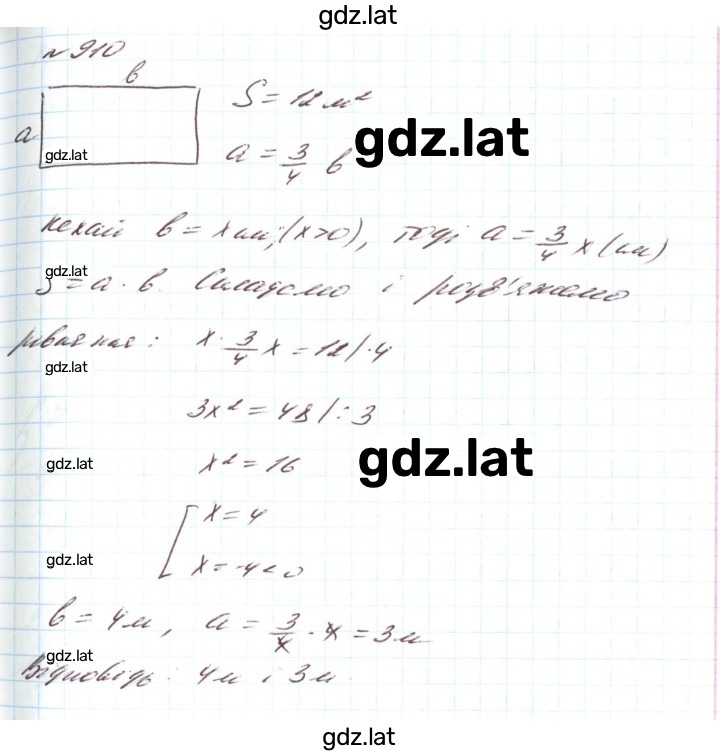 gdz.lat
№ 910
в
S = 12 м²
а
gdz.lat
а = 3/4 в
gdz.lat
нехай в = х см; (х>0), тоді а = 3/4 х (см)
gdz.lat
S = а · в. Складемо і розв'яжемо
рівняння: х · 3/4 х = 12 | · 4
gdz.lat
3х² = 48 | : 3
gdz.lat
х² = 16
gdz.lat
[ х = 4
gdz.lat
х = -4 < 0
в = 4м, а = 3/4 · 4 = 3м
gdz.lat
Відповідь: 4м і 3м.
gdz.lat